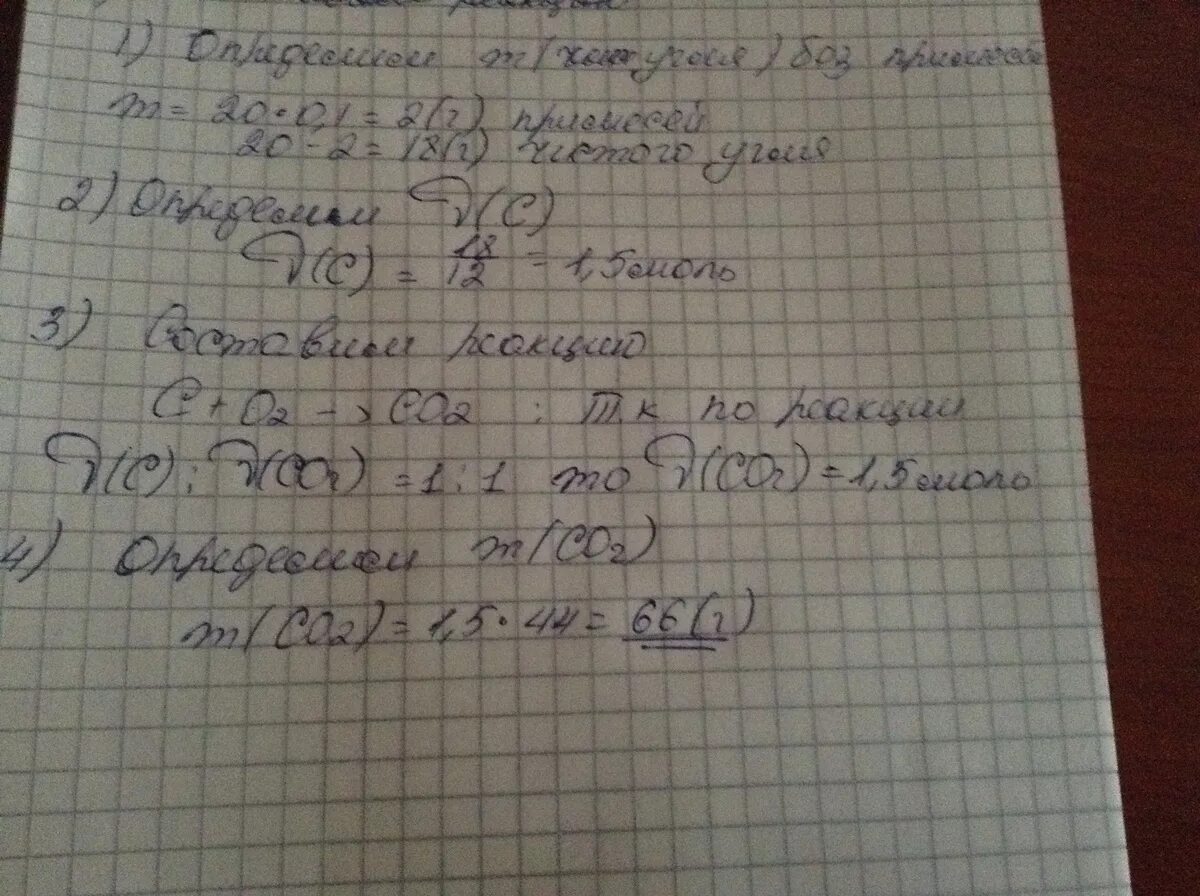 реакции
1) Определим m(          угля) без примесей
m = 20 · 0,1 = 2(г) примесей
20 - 2 = 18(г) чистого угля
2) Определим ν(C)
ν(C) = 18/12 = 1,5 моль
3) Составим реакцию
C + O2 -> CO2 ; т.к по реакции
ν(C) : ν(CO2) = 1 : 1 то ν(CO2) = 1,5 моль
4) Определим m(CO2)
m(CO2) = 1,5 · 44 = 66(г)